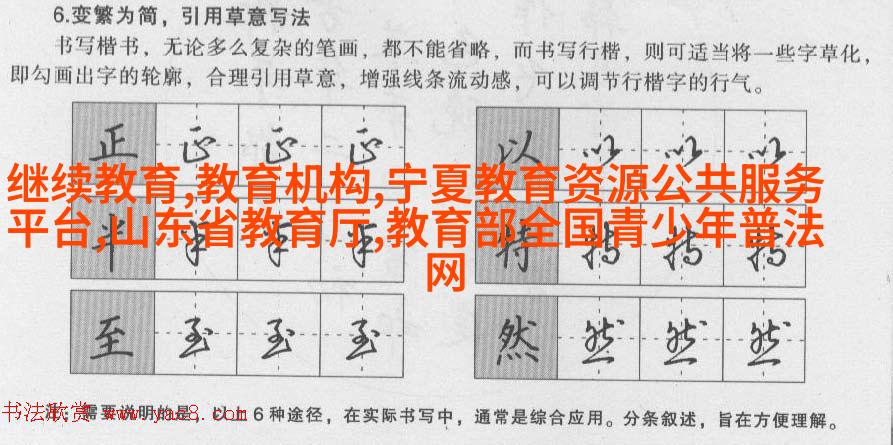 6.变繁为简，引用草意写法
书写楷书，无论多么复杂的笔画，都不能省略，而书写行楷，则可适当将一些字草化，
即勾画出字的轮廓，合理引用草意，增强线条流动感，可以调节行楷字的行气。
正 正 正 正 以 以 以 以
继续教育,教育机构,宁夏教育资源公共服务
平台,山东省教育厅,教育部全国青少年普法
网
半 半 半 半 特 特 特 特
至 至 至 至 然 然 然 然
注：需要说明的是，以上6种途径，在实际书写中，通常是综合应用。分条叙述，旨在方便理解。
书法欣赏 www.yac8.com